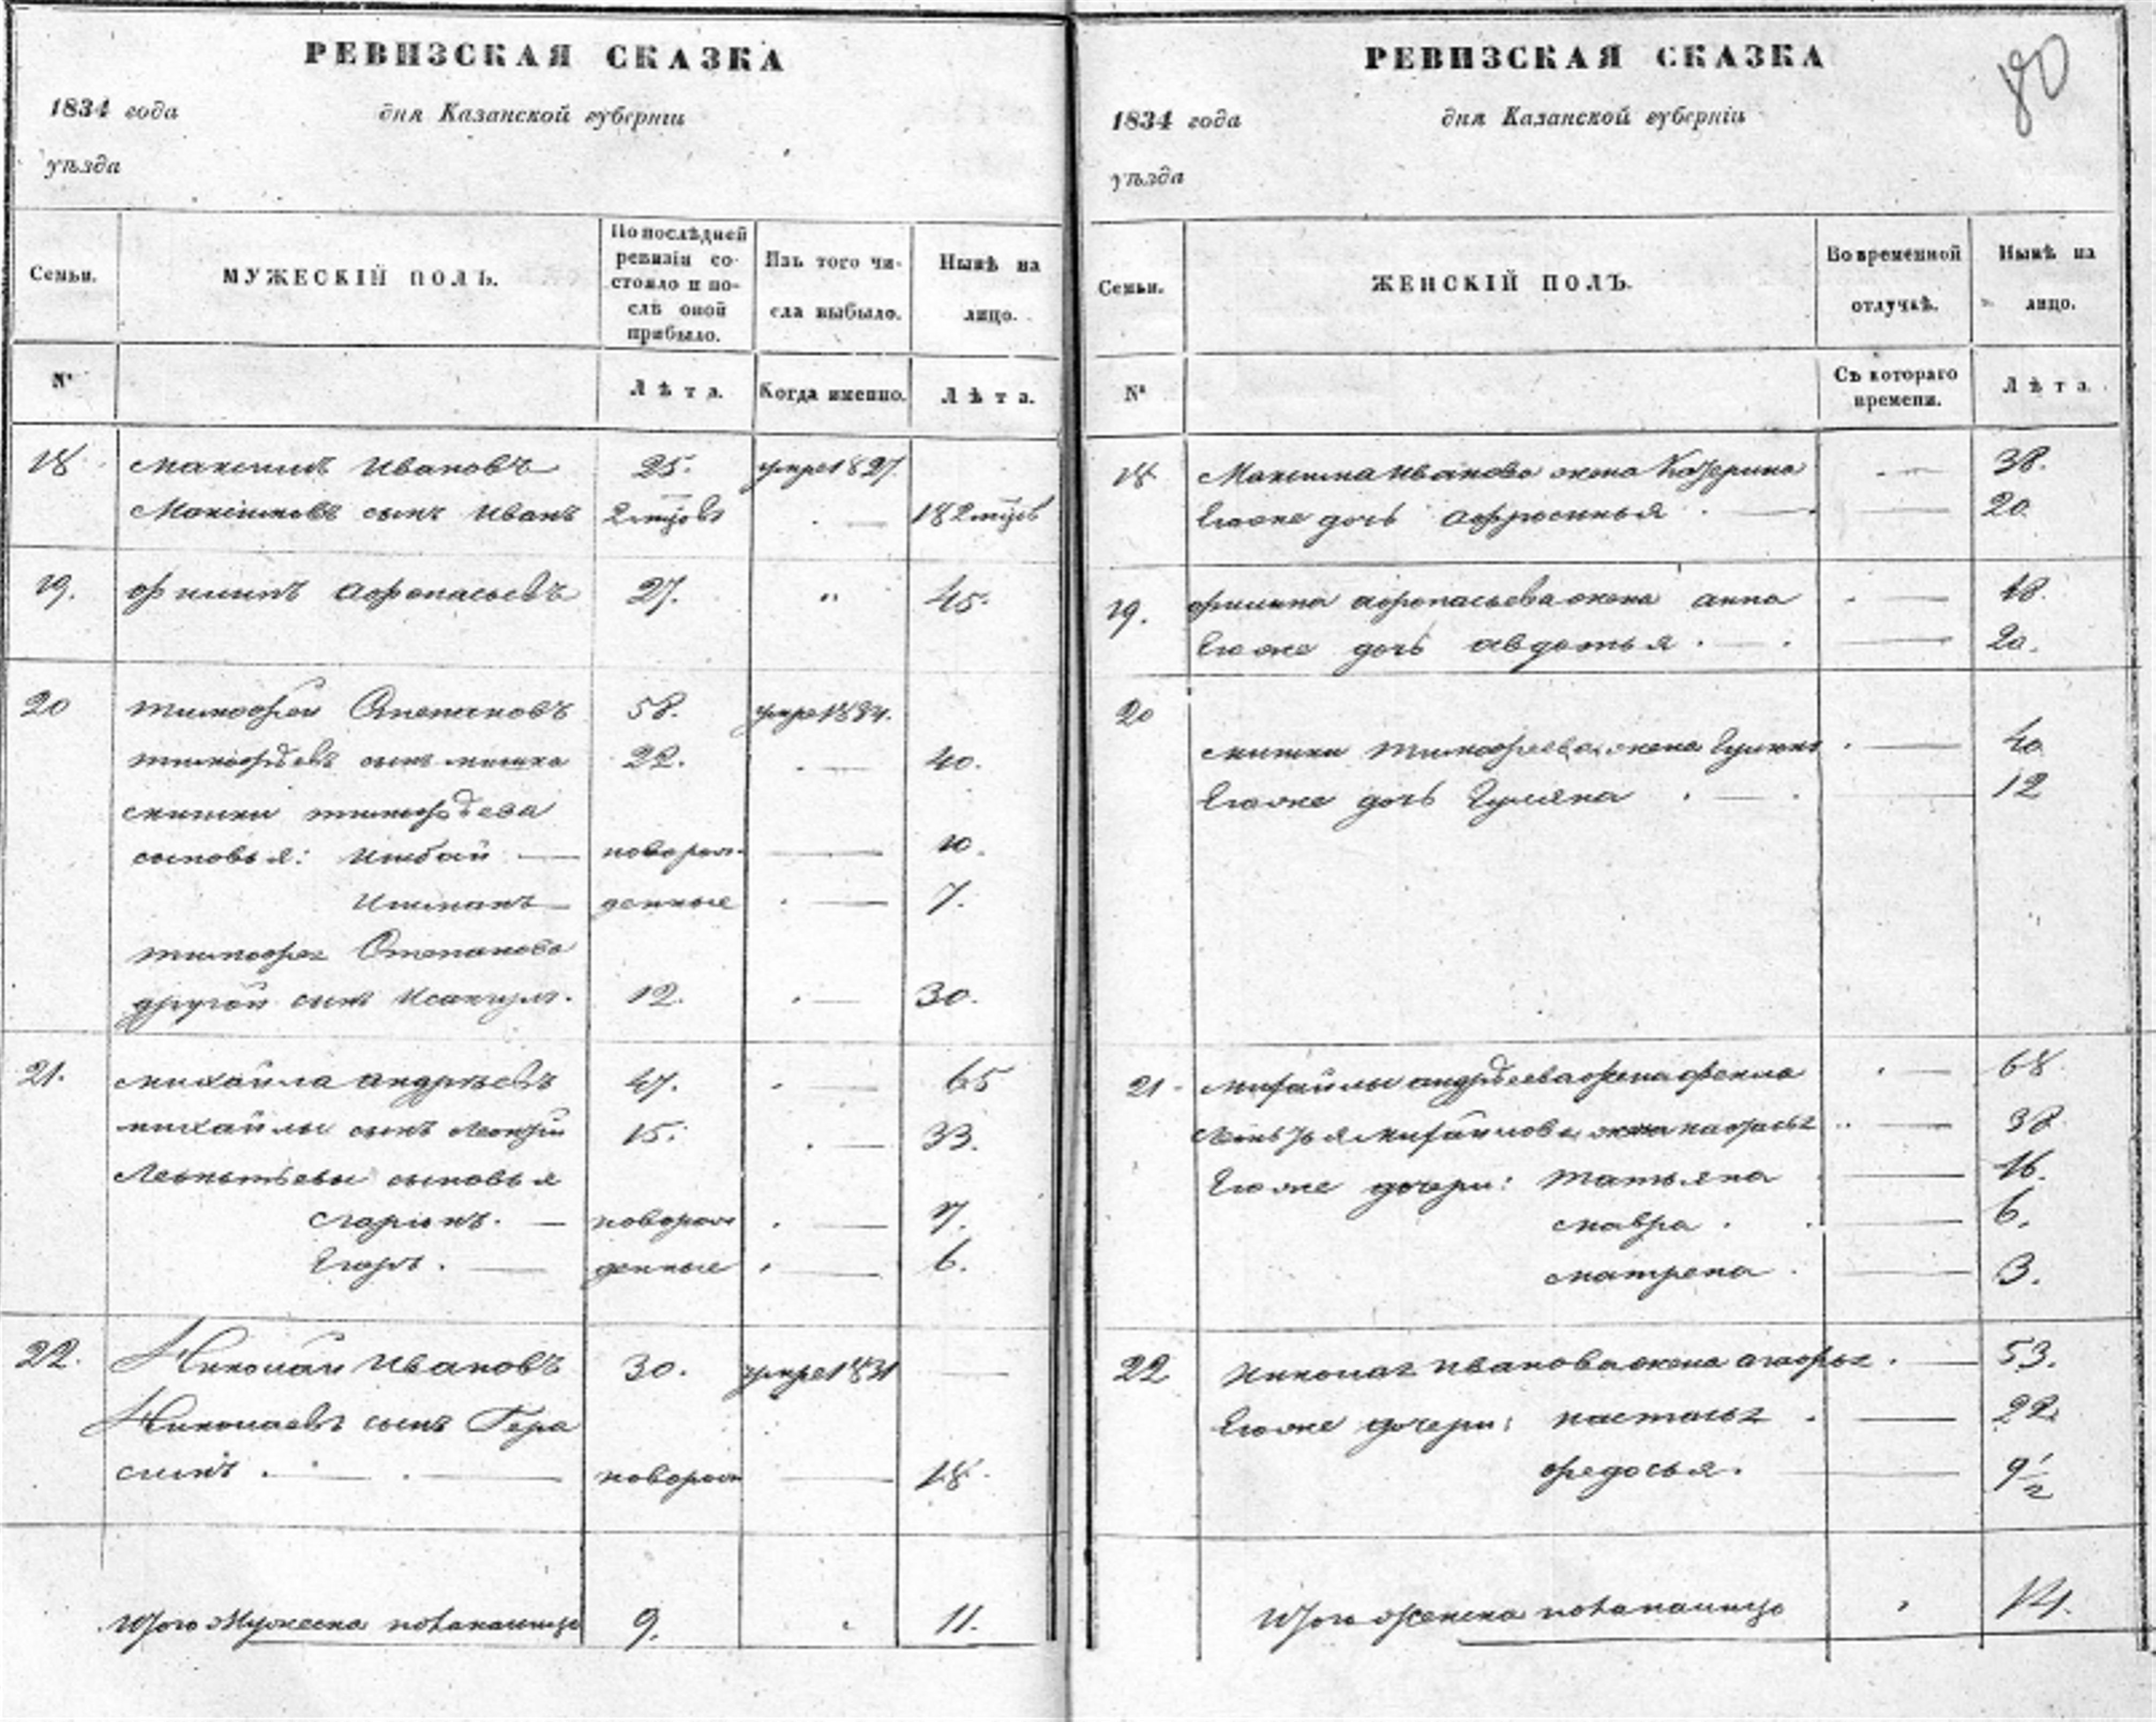 РЕВИЗСКАЯ СКАЗКА
1834 года дня Казанской губерніи
уѣзда
Семьи. МУЖЕСКІЙ ПОЛЪ. По послѣдней ревизіи состояло и послѣ оной прибыло. Изъ того числа выбыло. Нынѣ на лицо.
№ Лѣта. Когда именно. Лѣта.
18 Максимъ Ивановъ 25. умре 1827.
Максимовъ сынъ Иванъ 18
19. Филипъ Афонасьевъ 27. " 45.
20 Тимофей Степановъ 58. умре
Тимофѣевъ сынъ Мишка 22. 40.
Мишки Тимофѣева
сыновья: Ишбай — новорож- 10.
Ишманъ — денные 7.
Тимофея Степанова
другой сынъ 12. 30.
21. Михайла Андрѣевъ 47. 65
Михайлы сынъ Леонтій 15. 33.
Леонтьевы сыновья
Ларіонъ. — новорож 7.
Егоръ. — денные 6.
22. Николай Ивановъ 30. умре 1831
Николаевъ сынъ Гера
симъ. новорож 18.
Итого Мужеска пола на лицо 9. 11.
РЕВИЗСКАЯ СКАЗКА
80
1834 года дня Казанской губерніи
уѣзда
Семьи. ЖЕНСКІЙ ПОЛЪ. Во временной отлучкѣ. Нынѣ на лицо.
№ Съ котораго времени. Лѣта.
18 Максима Иванова жена Катерина 38.
Егоже дочь Афросинья 20
19. Филипа Афонасьева жена Анна 48.
Егоже дочь Авдотья 20.
20
Мишки Тимофеева жена 40
Егоже дочь Гуляна 12
21 Михайлы Андрѣева жена Фекла 68.
Леонтья Михайлова жена 38
Егоже дочери: Татьяна 16.
Мавра 6.
Матрена 3.
22 Николая Иванова жена 53.
Егоже дочери: Настасья 22
Федосья. 9½
Итого Женска пола на лицо 14.